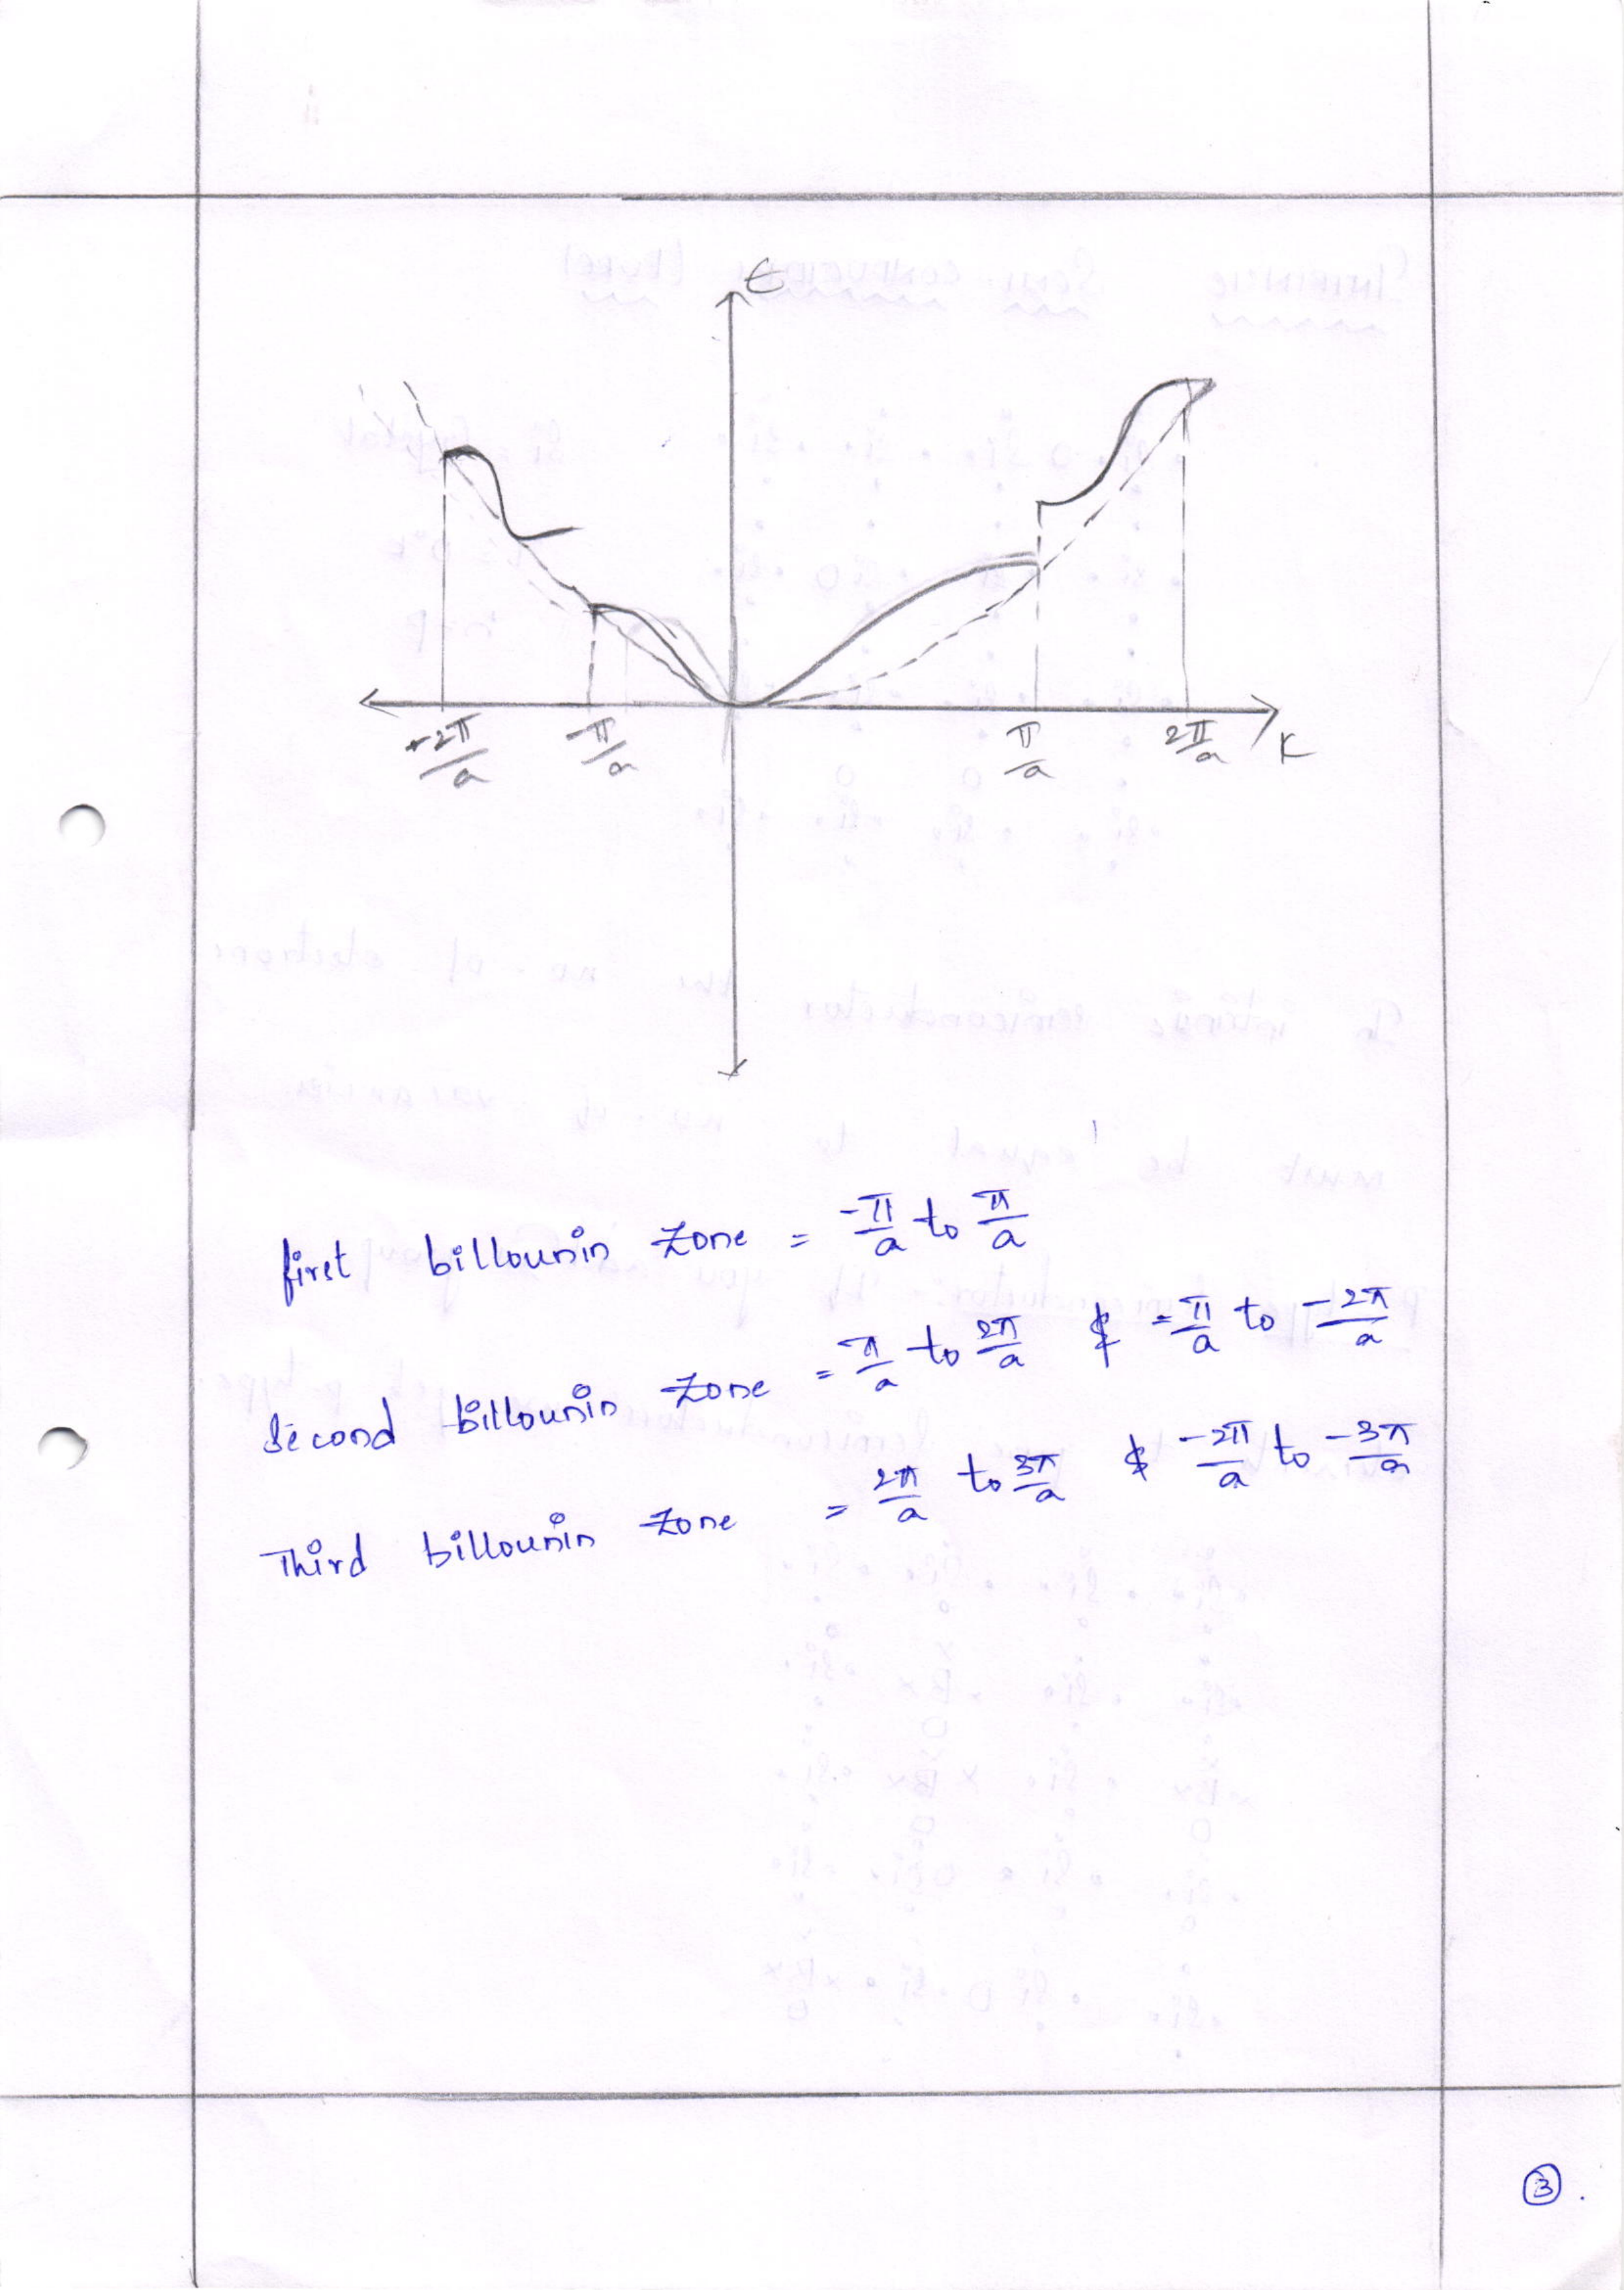 E
-2π/a -π/a π/a 2π/a K
first billounin zone = -π/a to π/a
Second billounin zone = π/a to 2π/a & -π/a to -2π/a
Third billounin zone = 2π/a to 3π/a & -2π/a to -3π/a
3.